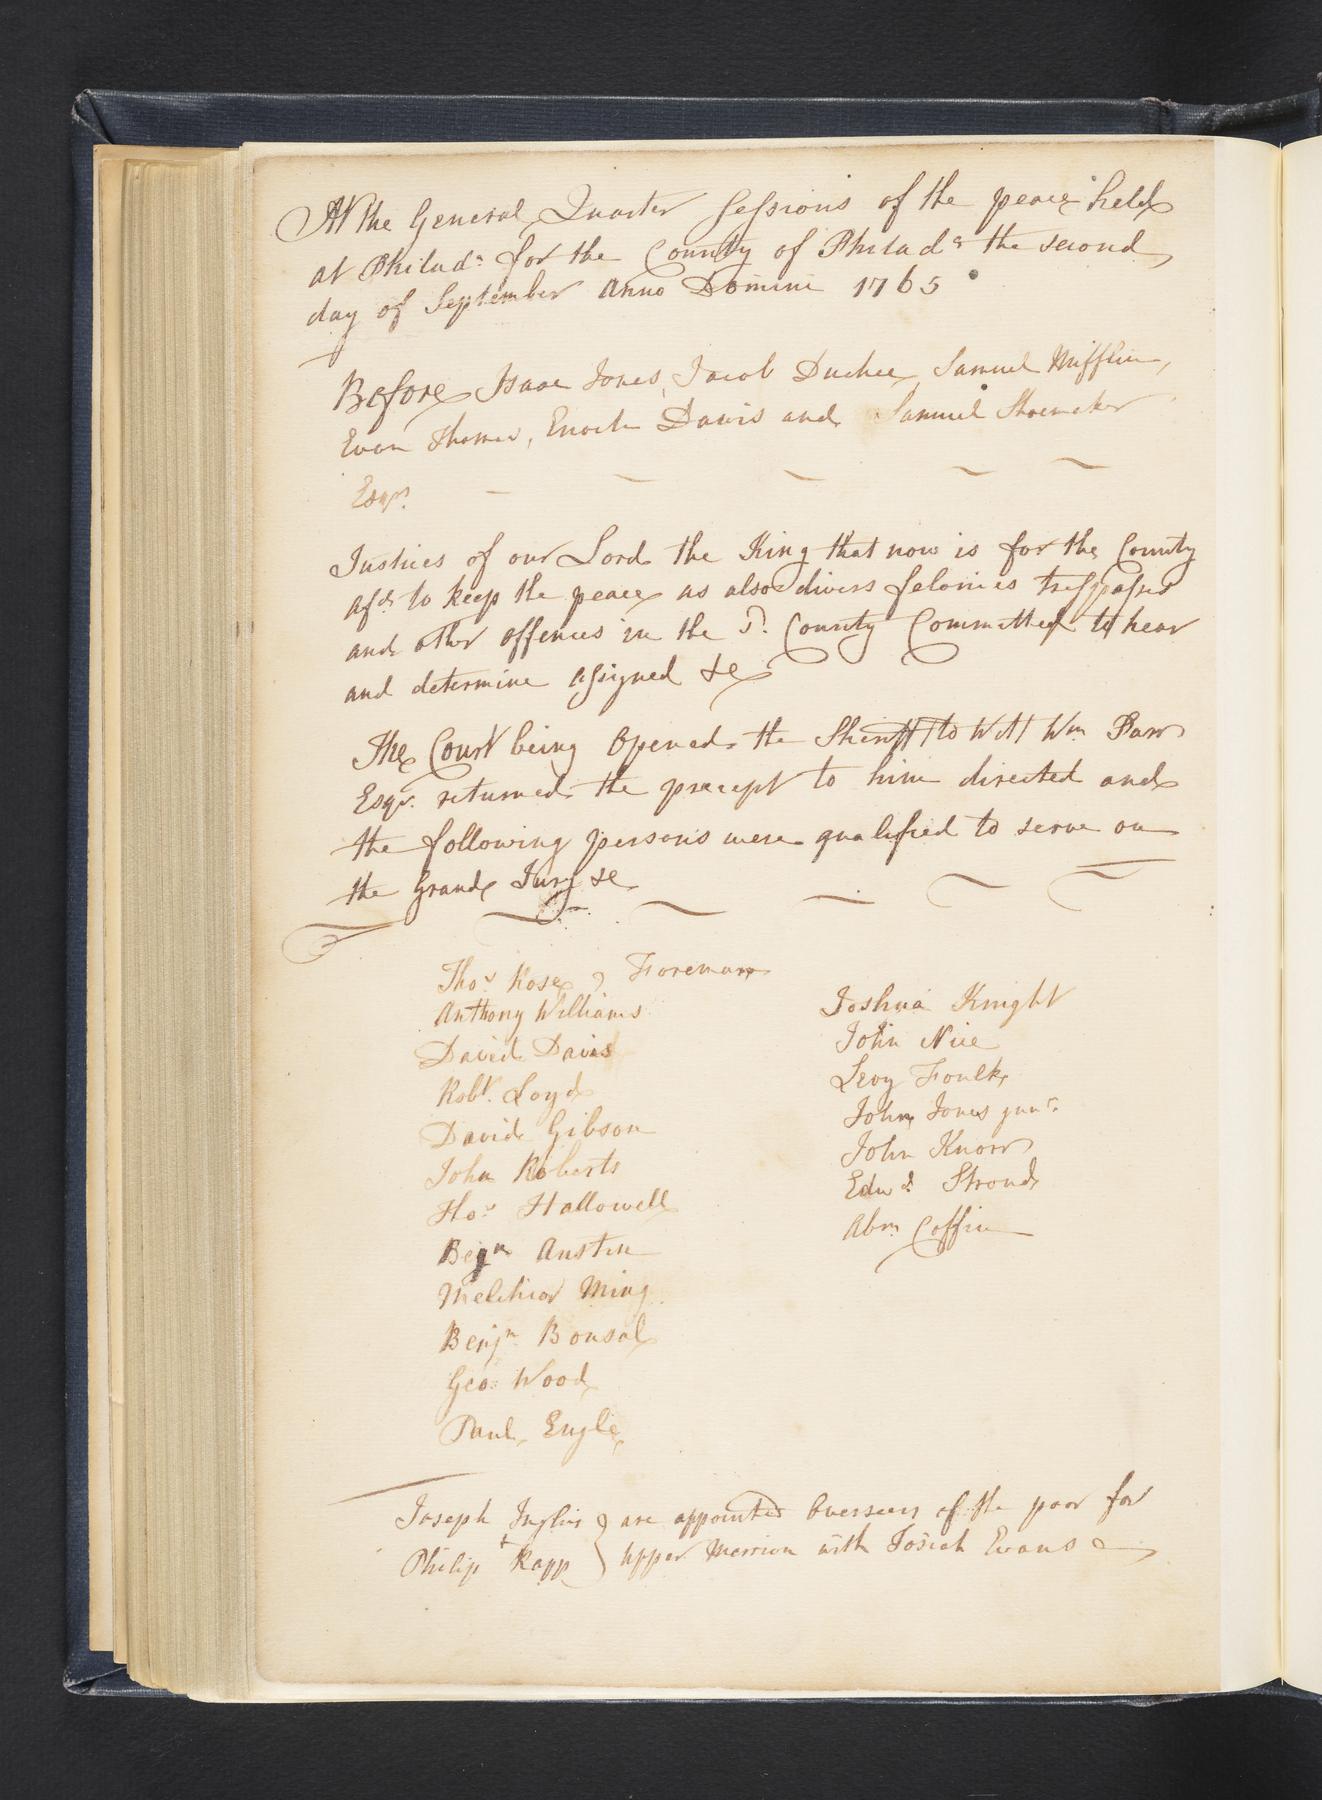 At the General Quarter Sessions of the peace held
at Philada. for the County of Philada. the second
day of September Anno Domini 1765
Before Isaac Jones, Jacob Duchee, Samuel Mifflin,
Evan Thomas, Enoch Davis and Samuel Shoemaker
Esqrs.
Justices of our Lord the King that now is for the County
afd. to keep the peace as also divers felonies trespasses
and other offences in the sd. County Committed to hear
and determine assigned &c
The Court being Opened the Sheriff to Wit Wm Parr
Esqr. returned the precept to him directed and
the following persons were qualified to serve on
the Grand Jury &c
Thos. Rose, Foreman
Anthony Williams
David Davis
Robt. Loyd
David Gibson
John Roberts
Thos. Hallowell
Benjn Austin
Melchior Ming
Benjn Bonsal
Geo: Wood
Paul Engle
Joshua Knight
John Nice
Levy Foulk
John Jones junr.
John Knorr
Edwd. Stroud
Abm. Coffin
Joseph Inglis } are appointed Overseers of the poor for
+
Philip Rapp } upper Merrion with Josiah Evans